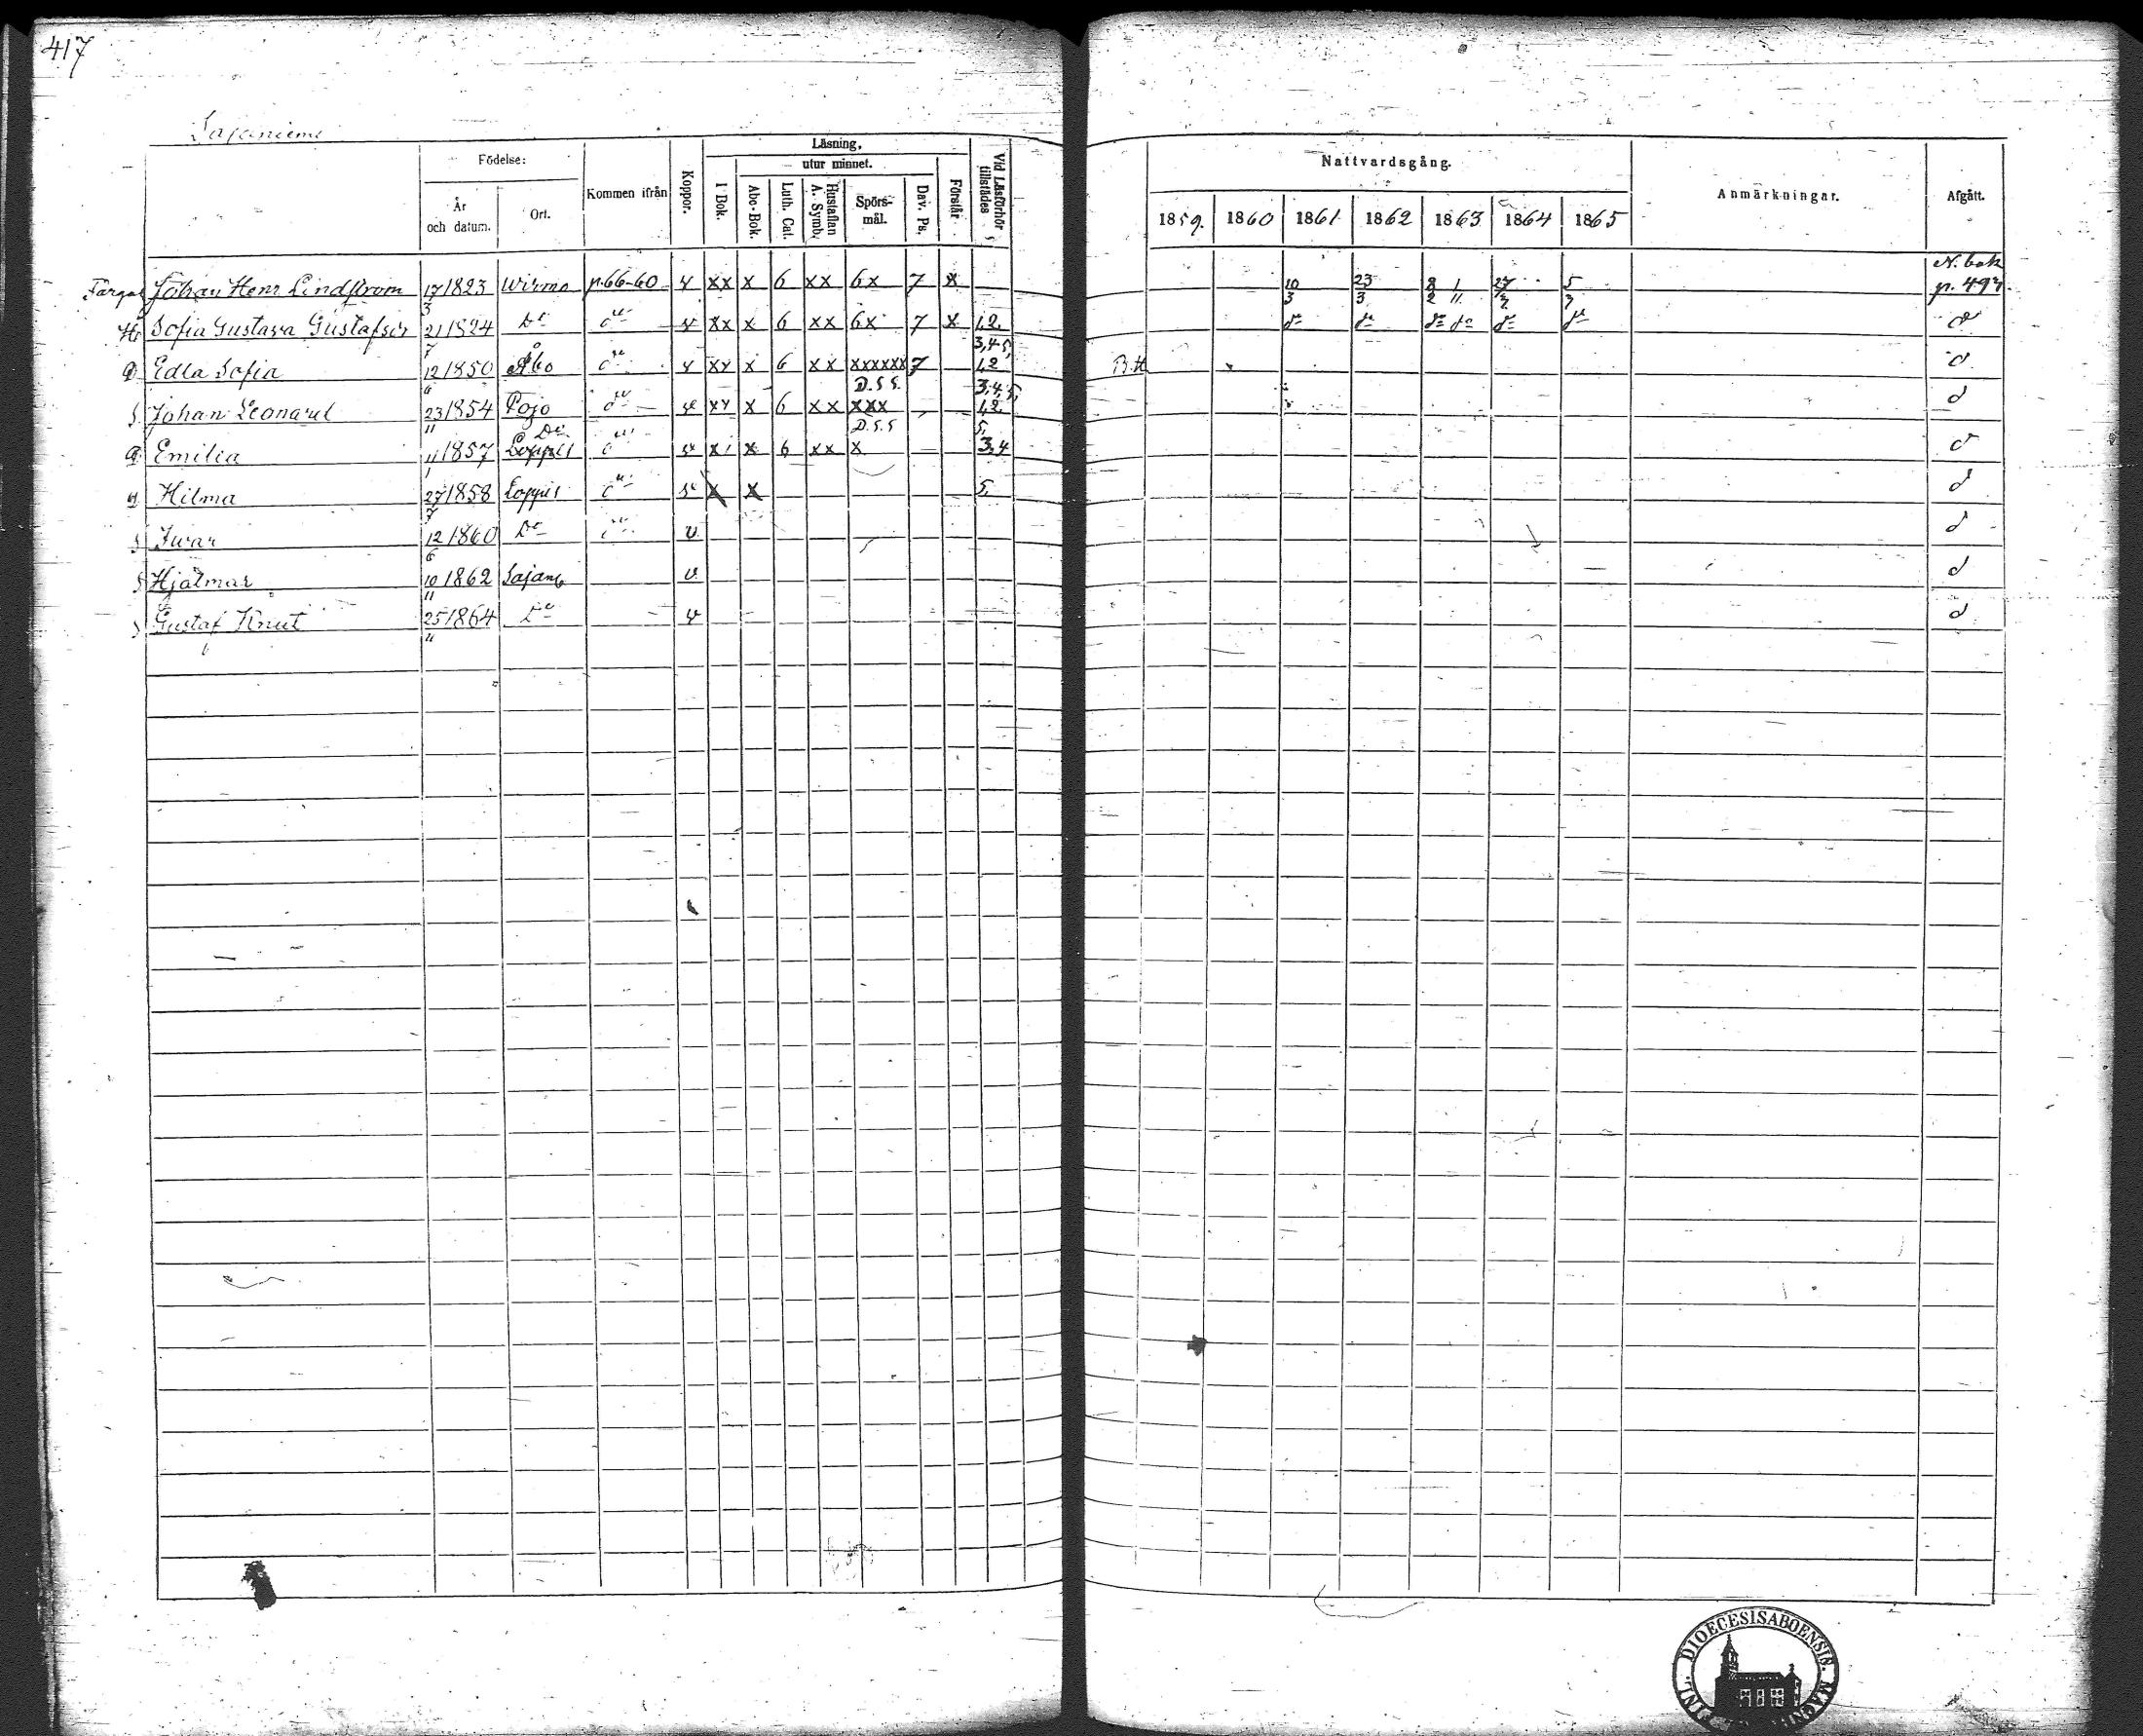 417
Sajaniemi
Födelse:
År och datum.
Ort.
Kommen ifrån
Koppor.
Läsning.
I Bok.
utur minnet.
Abc-Bok.
Luth. Cat.
Hustaflan A. Symb.
Spörs-mål.
Dav. Ps.
Förstår
Vid Läsförhör tillstädes
Nattvardsgång.
1859. 1860 1861 1862 1863 1864 1865
Anmärkningar.
Afgått.
N. bok
Johan Henr Lindström 17/3 1823 Wirmo p.66-60 v xx x 6 xx 6x 7 x 10/3 23/3 8/2 1/11 p. 497
H. Sofia Gustava 21/7 1824 Do do v xx x 6 xx 6x 7 x 1,2. 3,4 5, do do do do do do do
D Edla Sofia 12/6 1850 Åbo do v xx x 6 xx xxxxxx 7 1,2 3,4,5, B.H. d
S. Johan Leonard 23/11 1854 Pojo do v xx x 6 xx xxx 1,2. 5, d
D. Emilia 11/1 1857 Loppis do v x x 6 xx x 3,4 d
Hilma 27/7 1858 Loppis do v x x 5. d
S Iwar 12/6 1860 Do do v d
S Hjalmar 10/11 1862 Sajan v d
S Gustaf Knut 25/11 1864 Do v d
DIOECESIS ABOENSIN. MAGNI